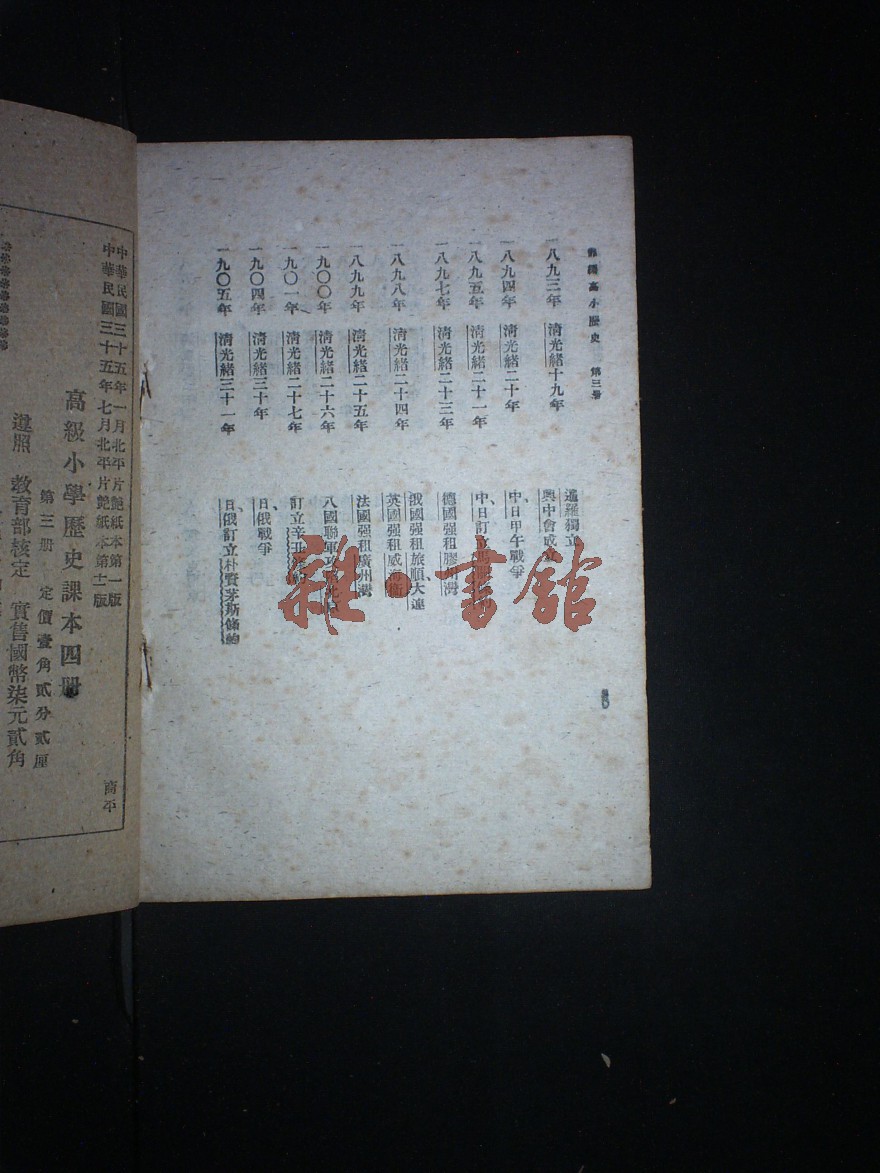 高小歷史　第三册
一八九三年　清光緒十九年　暹羅獨立
興中會成立
一八九四年　清光緒二十年　中、日甲午戰爭
一八九五年　清光緒二十一年　中、日訂立
一八九七年　清光緒二十三年　德國强租膠州灣
一八九八年　清光緒二十四年　俄國强租旅順、大連
英國强租威海衞
一八九九年　清光緒二十五年　法國强租廣州灣
一九〇〇年　清光緒二十六年　八國聯軍
一九〇一年　清光緒二十七年　訂立辛丑
一九〇四年　清光緒三十年　日、俄戰爭
一九〇五年　清光緒三十一年　日、俄訂立朴資茅斯條約
中華民國三十五年一月北平片艷紙本第一版
中華民國三十五年七月北平片艷紙本第十二版
高級小學歷史課本四册
第三册　定價壹角貳分貳厘
遵照　教育部核定　實售國幣柒元貳角
商平
雜·書館